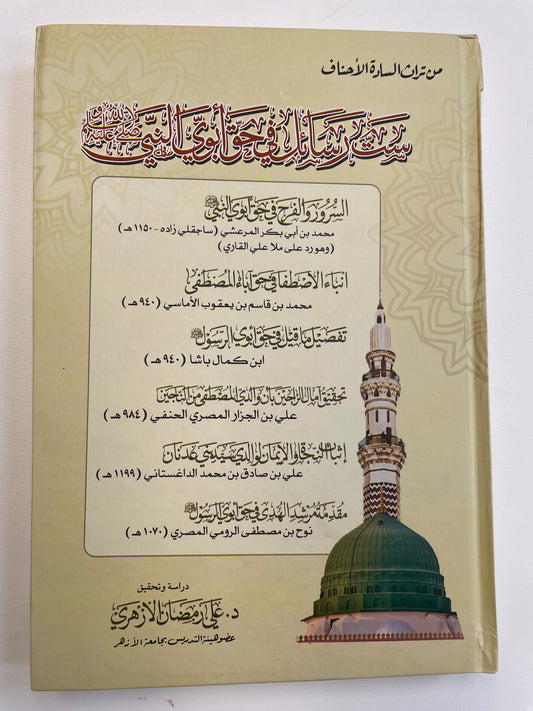 من تراث السادة الأحناف
ست رسائل في حق أبوي النبي ﷺ
السرور والفرح في حق أبوي النبي ﷺ
محمد بن أبي بكر المرعشي (ساجقلي زاده - ١١٥٠هـ)
(وهو رد على ملا علي القاري)
انباء الأصطفا في حق آباء المصطفى
محمد بن قاسم بن يعقوب الأماسي (٩٤٠هـ)
تفصيل ما قيل في حق أبوي الرسول ﷺ
ابن كمال باشا (٩٤٠هـ)
تحقيق آمال الراجين بأن والدي المصطفى من الناجين
علي بن الجزار المصري الحنفي (٩٨٤هـ)
إثبات النجاة والإيمان لوالدي سيد بني عدنان
علي بن صادق بن محمد الداغستاني (١١٩٩هـ)
مقدمة مرشد الهدى في حق أبوي الرسول ﷺ
نوح بن مصطفى الرومي المصري (١٠٧٠هـ)
دراسة وتحقيق
د. علي رمضان الأزهري
عضو هيئة التدريس بجامعة الأزهر